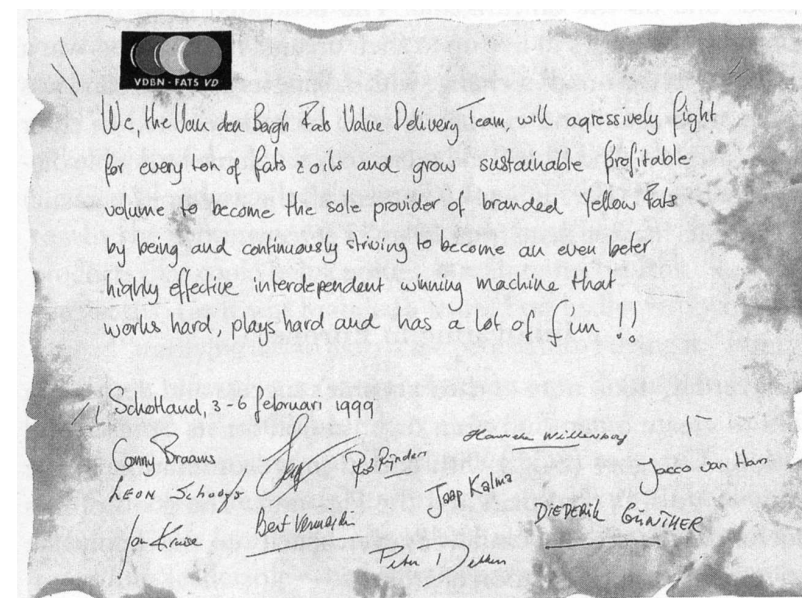 VDBN - FATS VD
We, the Van den Bergh Fats Value Delivery Team, will agressively fight
for every ton of fats & oils and grow sustainable profitable
volume to become the sole provider of branded Yellow Fats
by being and continuously striving to become an even beter
highly effective interdependent winning machine that
works hard, plays hard and has a lot of fun !!
Schotland, 3-6 februari 1999
Conny Braams
Rob Rijnders
Hanneke Willenborg
LEON Schoofs
Jaap Kalma
Jacco van Ham
Jan Kruise
Bert
DIEDERIK GÜNTHER
Peter